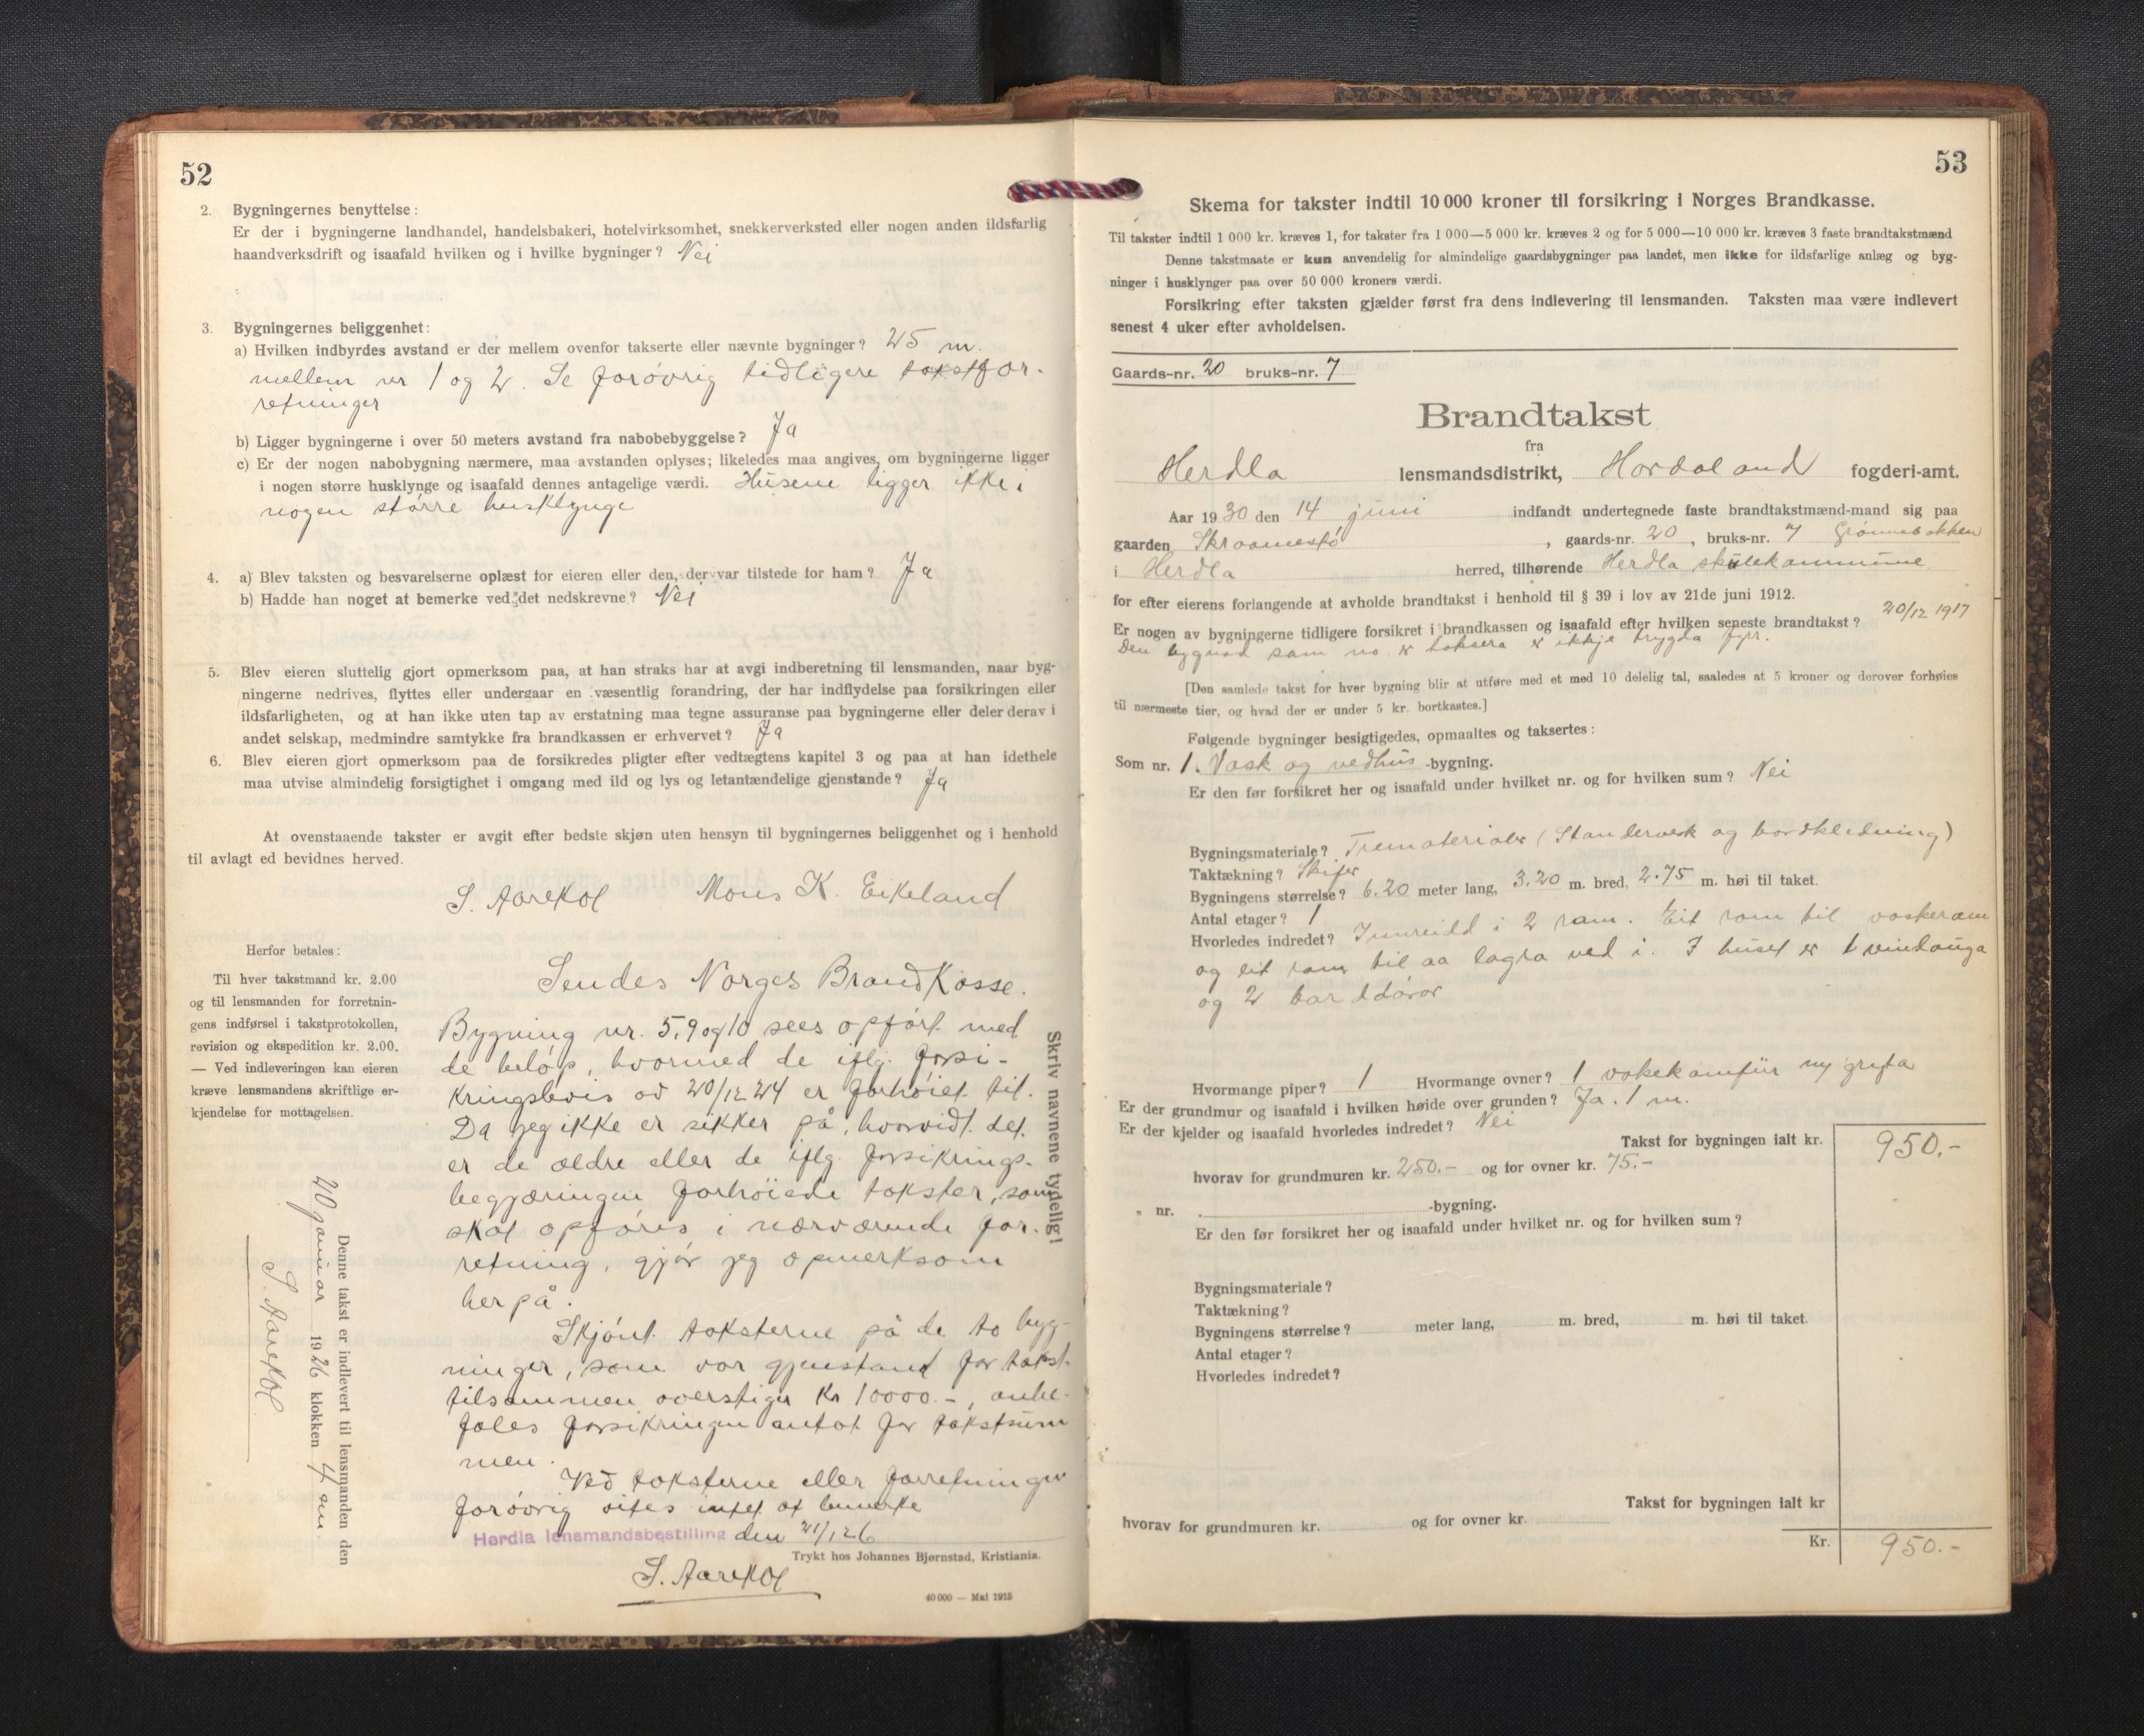 52
2. Bygningernes benyttelse:
Er der i bygningerne landhandel, handelsbakeri, hotelvirksomhet, snekkerverksted eller nogen anden ildsfarlig
haandverksdrift og isaafald hvilken og i hvilke bygninger? Nei
3. Bygningernes beliggenhet:
a) Hvilken indbyrdes avstand er der mellem ovenfor takserte eller nævnte bygninger? 25 m.
mellem nr 1 og 2. Se forøvrig tidligere takstfor-
retninger
b) Ligger bygningerne i over 50 meters avstand fra nabobebyggelse? Ja
c) Er der nogen nabobygning nærmere, maa avstanden oplyses; likeledes maa angives, om bygningerne ligger
i nogen større husklynge og isaafald dennes antagelige værdi. Husene ligger ikke i
nogen større husklynge
4. a) Blev taksten og besvarelserne oplæst for eieren eller den, der var tilstede for ham? Ja
b) Hadde han noget at bemerke ved det nedskrevne? Nei
5. Blev eieren sluttelig gjort opmerksom paa, at han straks har at avgi indberetning til lensmanden, naar byg-
ningerne nedrives, flyttes eller undergaar en væsentlig forandring, der har indflydelse paa forsikringen eller
ildsfarligheten, og at han ikke uten tap av erstatning maa tegne assuranse paa bygningerne eller deler derav i
andet selskap, medmindre samtykke fra brandkassen er erhvervet? Ja
6. Blev eieren gjort opmerksom paa de forsikredes pligter efter vedtægtens kapitel 3 og paa at han idethele
maa utvise almindelig forsigtighet i omgang med ild og lys og letantændelige gjenstande? Ja
At ovenstaaende takster er avgit efter bedste skjøn uten hensyn til bygningernes beliggenhet og i henhold
til avlagt ed bevidnes herved.
S. Aarekol Mons K. Eikeland
Herfor betales:
Til hver takstmand kr. 2.00
og til lensmanden for forretnin-
gens indførsel i takstprotokollen,
revision og ekspedition kr. 2.00.
— Ved indleveringen kan eieren
kræve lensmandens skriftlige er-
kjendelse for mottagelsen.
Sendes Norges Brandkasse.
Bygning nr. 5, 9 og 10 sees opført med
de beløp, hvormed de iflg. forsi-
kringsbevis av 20/12 24 er forhøiet til.
Da jeg ikke er sikker på, hvorvidt det
er de ældre eller de iflg. forsikrings-
begjæringen forhøiede takster, som
skal opføres i nærværende for-
retning, gjør jeg opmerksom
herpå.
Skjønt taksterne på de to byg-
ninger, som var gjenstand for takst
tilsammen overstiger Kr 10000.-, anbe-
fales forsikringen antat for takstsum
men.
Ved taksterne eller forretningen
forøvrig vites intet at bemerke
Herdla lensmandsbestilling den 21/1 26
S. Aarekol
Trykt hos Johannes Bjørnstad, Kristiania.
40 000 — Mai 1915
Skriv navnene tydelig!
Denne takst er indlevert til lensmanden den
20 januar 1926 klokken 4 em.
S. Aarekol
53
Skema for takster indtil 10 000 kroner til forsikring i Norges Brandkasse.
Til takster indtil 1 000 kr. kræves 1, for takster fra 1 000—5 000 kr. kræves 2 og for 5 000—10 000 kr. kræves 3 faste brandtakstmænd
Denne takstmaate er kun anvendelig for almindelige gaardsbygninger paa landet, men ikke for ildsfarlige anlæg og byg-
ninger i husklynger paa over 50 000 kroners værdi.
Forsikring efter taksten gjælder først fra dens indlevering til lensmanden. Taksten maa være indlevert
senest 4 uker efter avholdelsen.
Gaards-nr. 20 bruks-nr. 7
Brandtakst
fra
Herdla lensmandsdistrikt, Hordaland fogderi-amt.
Aar 1930 den 14 juni indfandt undertegnede faste brandtakstmænd-mand sig paa
gaarden Skraamestø, gaards-nr. 20, bruks-nr. 7 Grønnebakken
i Herdla herred, tilhørende Herdla skulekommune
for efter eierens forlangende at avholde brandtakst i henhold til § 39 i lov av 21de juni 1912.
Er nogen av bygningerne tidligere forsikret i brandkassen og isaafald efter hvilken seneste brandtakst? 20/12 1917
Den bygnad som no er taksera er ikkje trygda fyr.
[Den samlede takst for hver bygning blir at utføre med et med 10 delelig tal, saaledes at 5 kroner og derover forhøies
til nærmeste tier, og hvad der er under 5 kr. bortkastes.]
Følgende bygninger besigtigedes, opmaaltes og taksertes:
Som nr. 1. Vask og vedhus -bygning.
Er den før forsikret her og isaafald under hvilket nr. og for hvilken sum? Nei
Bygningsmateriale? Trematerialer (Standerverk og bordkledning)
Taktækning? Skifer
Bygningens størrelse? 6.20 meter lang, 3.20 m. bred, 2.75 m. høi til taket.
Antal etager? 1
Hvorledes indredet? Innreidd i 2 rom. Eit rom til vaskerom
og eit rom til aa lagra ved i. I huset er 1 vindauga
og 2 borddører
Hvormange piper? 1 Hvormange ovner? 1 ny gryta
Er der grundmur og isaafald i hvilken høide over grunden? Ja. 1 m.
Er der kjelder og isaafald hvorledes indredet? Nei
Takst for bygningen ialt kr. 950.-
hvorav for grundmuren kr. 250.- og for ovner kr. 75.-
„ nr. -bygning.
Er den før forsikret her og isaafald under hvilket nr. og for hvilken sum?
Bygningsmateriale?
Taktækning?
Bygningens størrelse? meter lang, m. bred, m. høi til taket.
Antal etager?
Hvorledes indredet?
Takst for bygningen ialt kr
hvorav for grundmuren kr. og for ovner kr.
Kr. 950.-